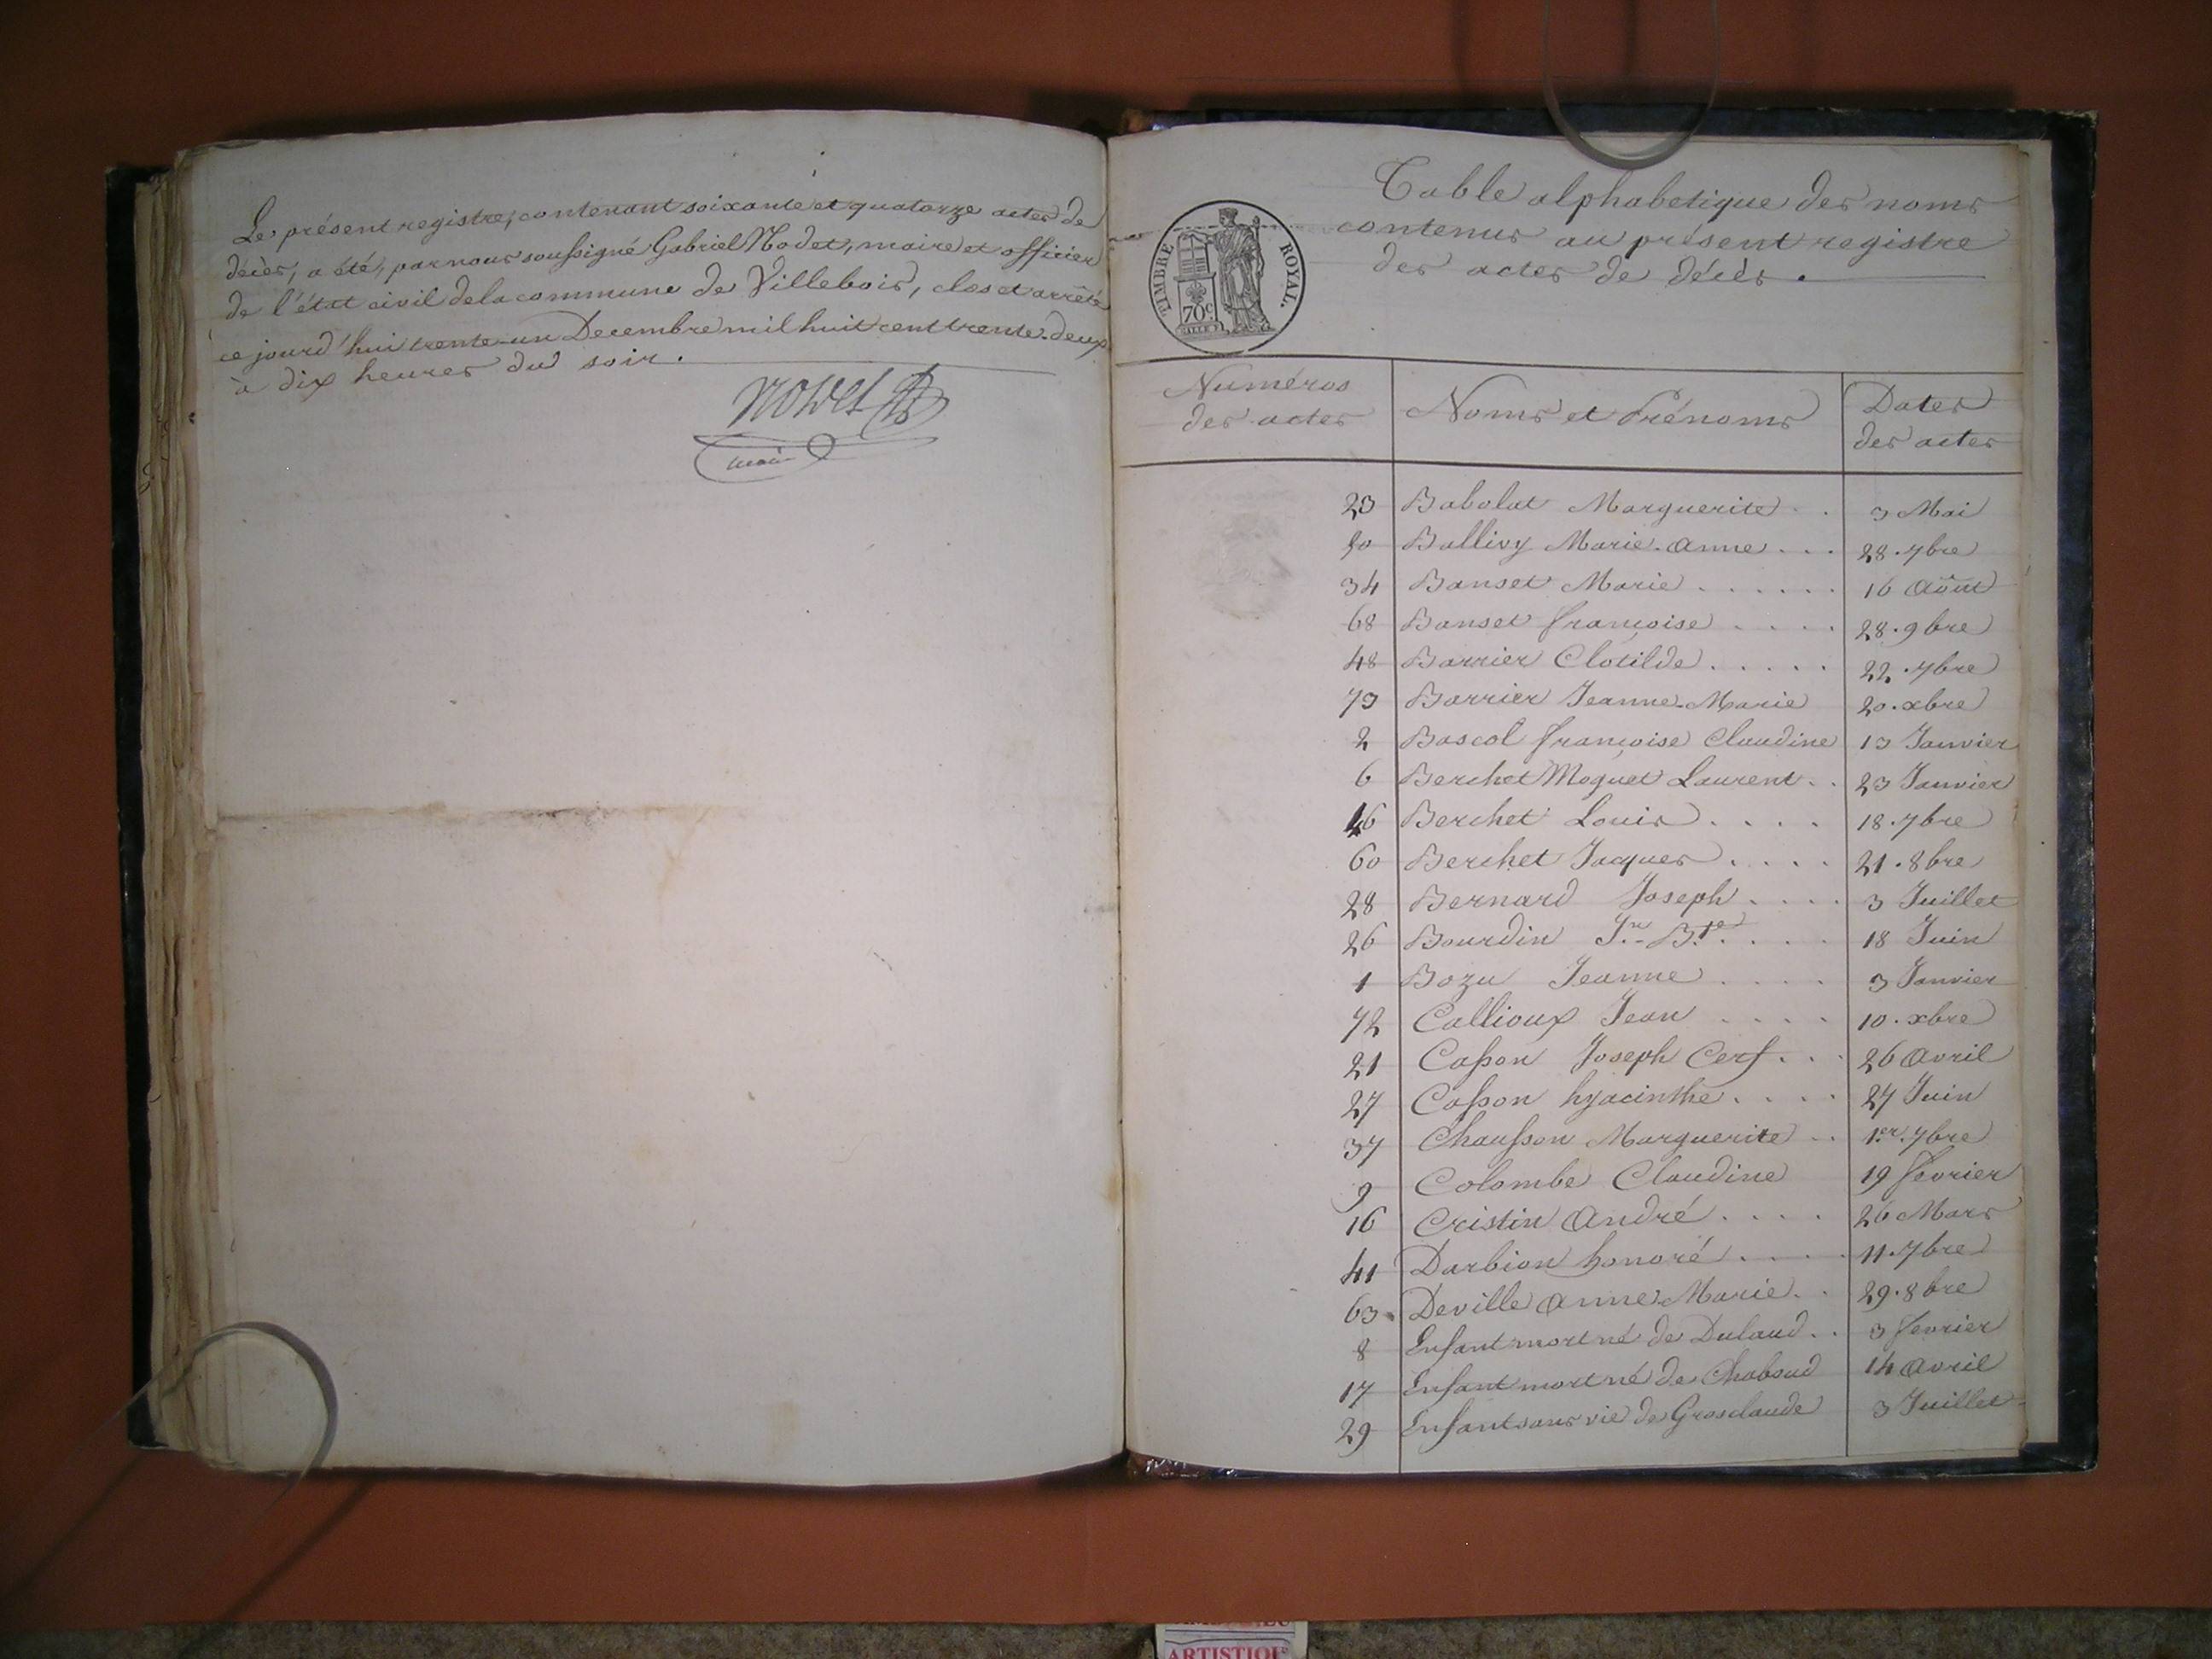 Le présent registre, contenant soixante et quatorze actes de
décès, a été, par nous soussigné Gabriel Nodet, maire et officier
de l'état civil de la commune de Villebois, clos et arrêté
ce jourd'hui trente-un Decembre mil huit cent trente-deux
à dix heures du soir.
Nodet
maire
TIMBRE ROYAL.
70c.
Table alphabetique des noms
contenus au présent registre
des actes de décès.
Numéros des actes | Noms et Prénoms | Dates des actes
23 Babolat Marguerite . . 3 Mai
50 Ballivy Marie-Anne . . . 28. 7bre
34 Banset Marie . . . . . . 16 Août
68 Banset françoise . . . . 28. 9bre
48 Barrier Clotilde . . . . . 22. 7bre
73 Barrier Jeanne-Marie 20. xbre
2 Bascol françoise Claudine 13 Janvier
6 Berchet Moguet Laurent . . 23 Janvier
46 Berchet Louis . . . . 18. 7bre
60 Berchet Jacques . . . . 21. 8bre
28 Bernard Joseph . . . . 3 Juillet
26 Bourdin Jn. Bte. . . . . 18 Juin
1 Bozu Jeanne . . . . 3 Janvier
72 Callioux Jean . . . . 10. xbre
21 Casson Joseph Cerf . . . 26 Avril
27 Casson hyacinthe . . . . 27 Juin
37 Chausson Marguerite . . 1er. 7bre
9 Colombe Claudine 19 fevrier
16 Cristin André . . . . 26 Mars
41 Darbion honoré . . . . 11. 7bre
63 Deville Anne-Marie . . 29. 8bre
8 Enfant mort né de Dulaud . . 3 fevrier
17 Enfant mort né de Chaboud 14 Avril
29 Enfant sans vie de Grosclaude 3 Juillet